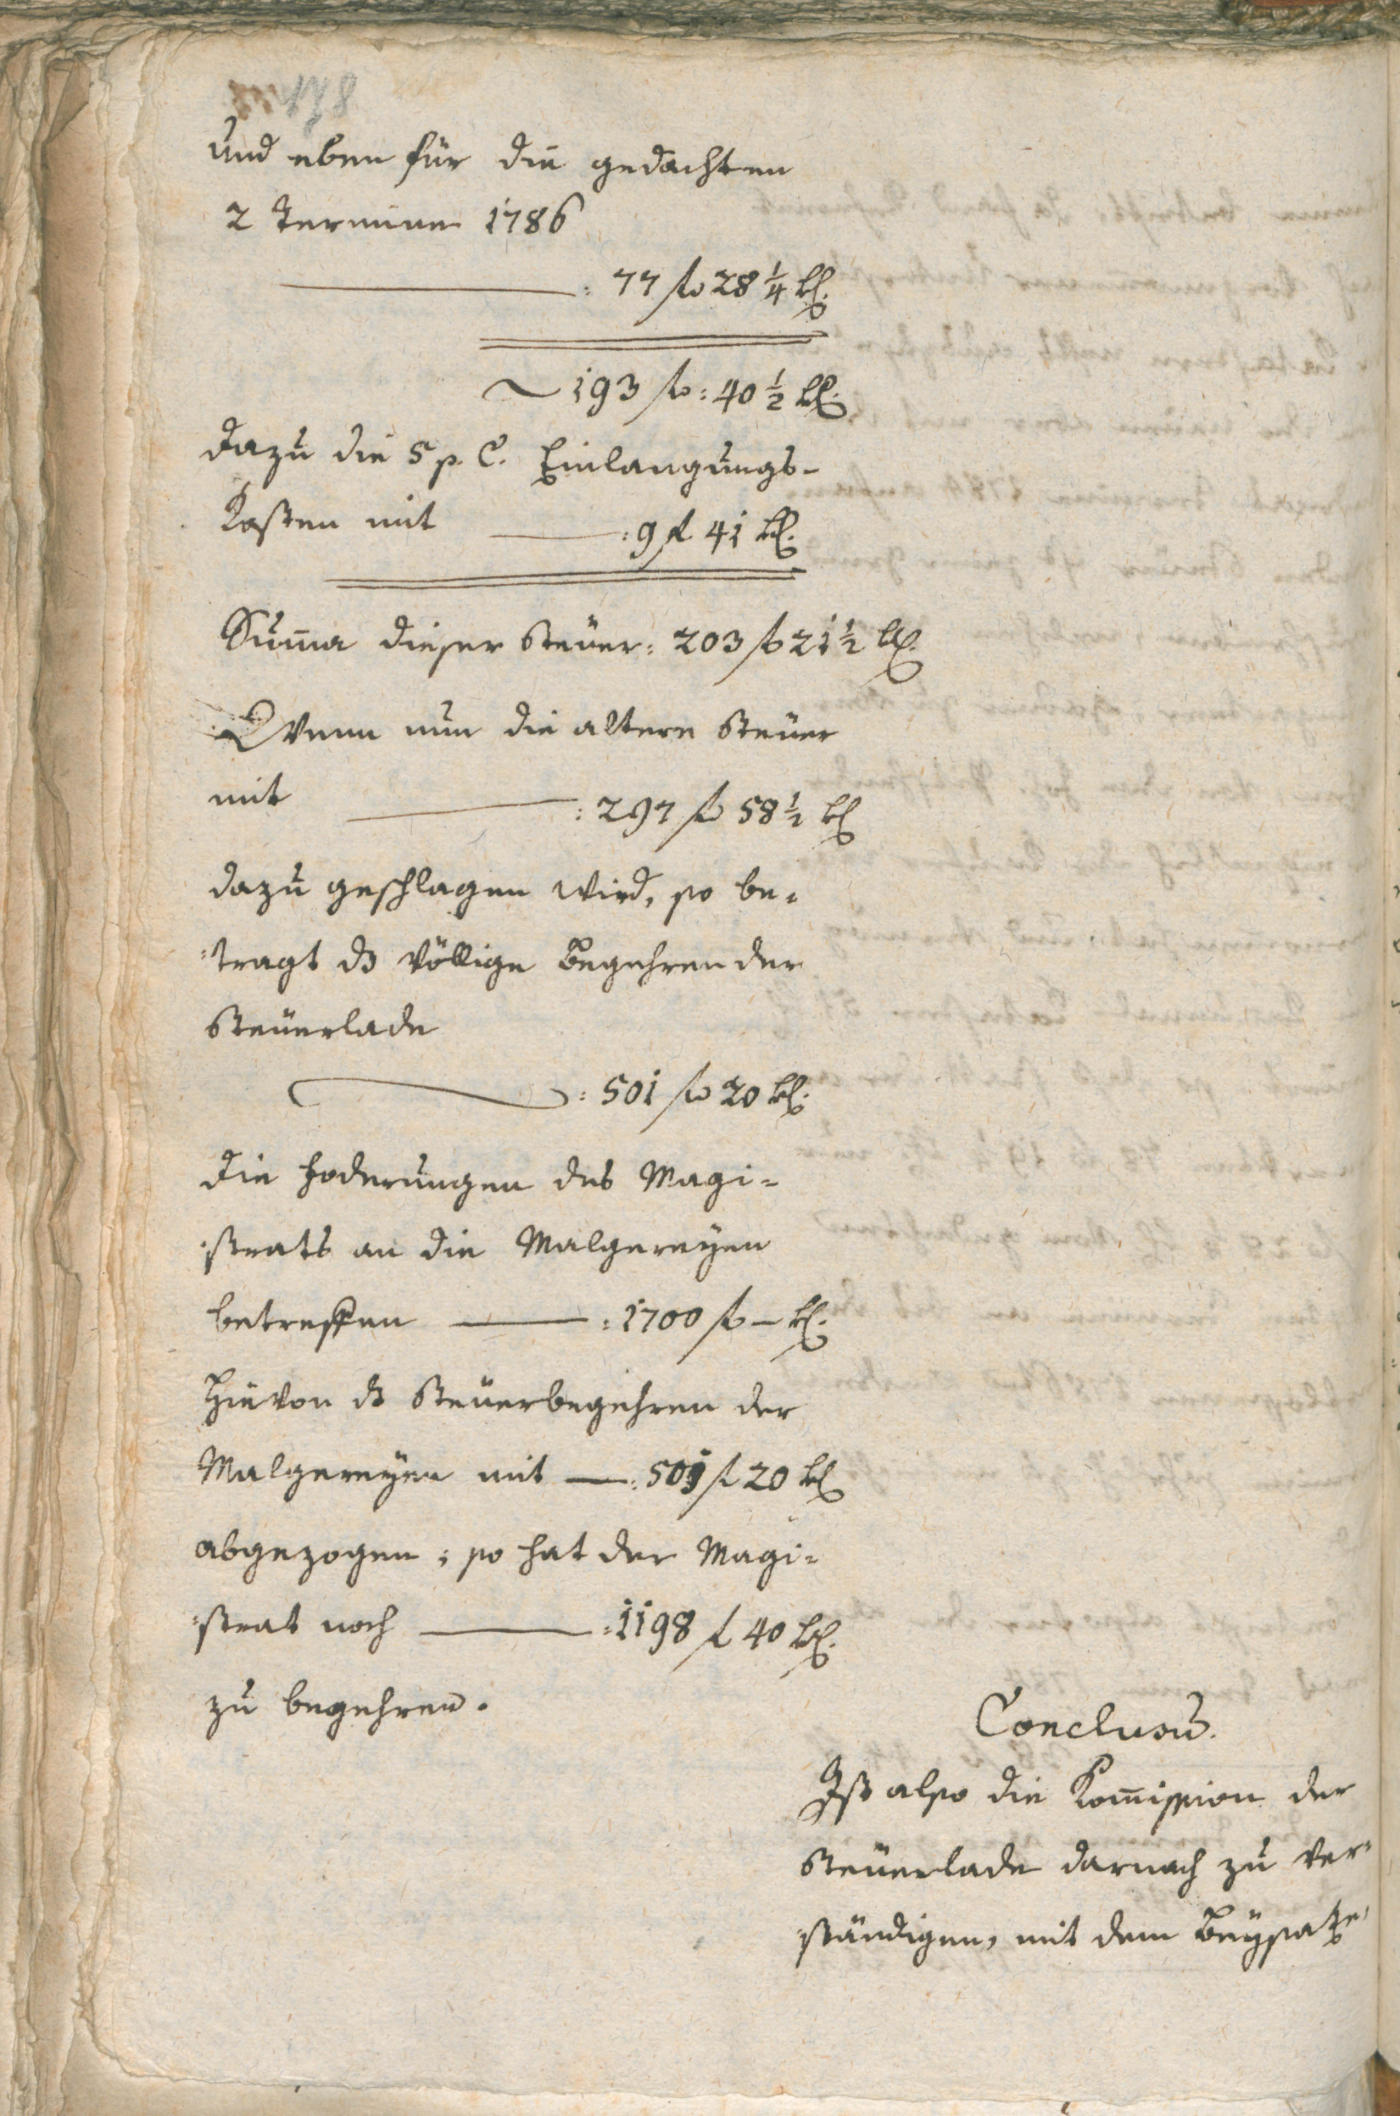 und eben für die gedachten
2 Termine 1786
: 77 fl 28 1/4 kr.
193 fl: 40 1/2 kr.
dazu die 5 p. C. Einlangungs-
Kosten mit : 9 fl 41 kr.
Suma dieser Steuer: 203 fl 21 1/2 kr.
Wenn nun die altere Steuer
mit : 297 fl 58 1/2 kr
dazu geschlagen wird, so be=
=tragt ds völlige Begehren der
Steuerlade
: 501 fl 20 kr.
Die Foderungen des Magi=
=strats an die Malgereyen
betreffen : 1700 fl – kr.
Hievon ds Steuerbegehren der
Malgereyen mit —: 501 fl 20 kr
abgezogen; so hat der Magi=
=strat noch : 1198 fl 40 kr.
zu begehren.
Conclusū.
Ist also die Komission der
Steuerlade darnach zu ver=
=ständigen, mit dem Beysatze